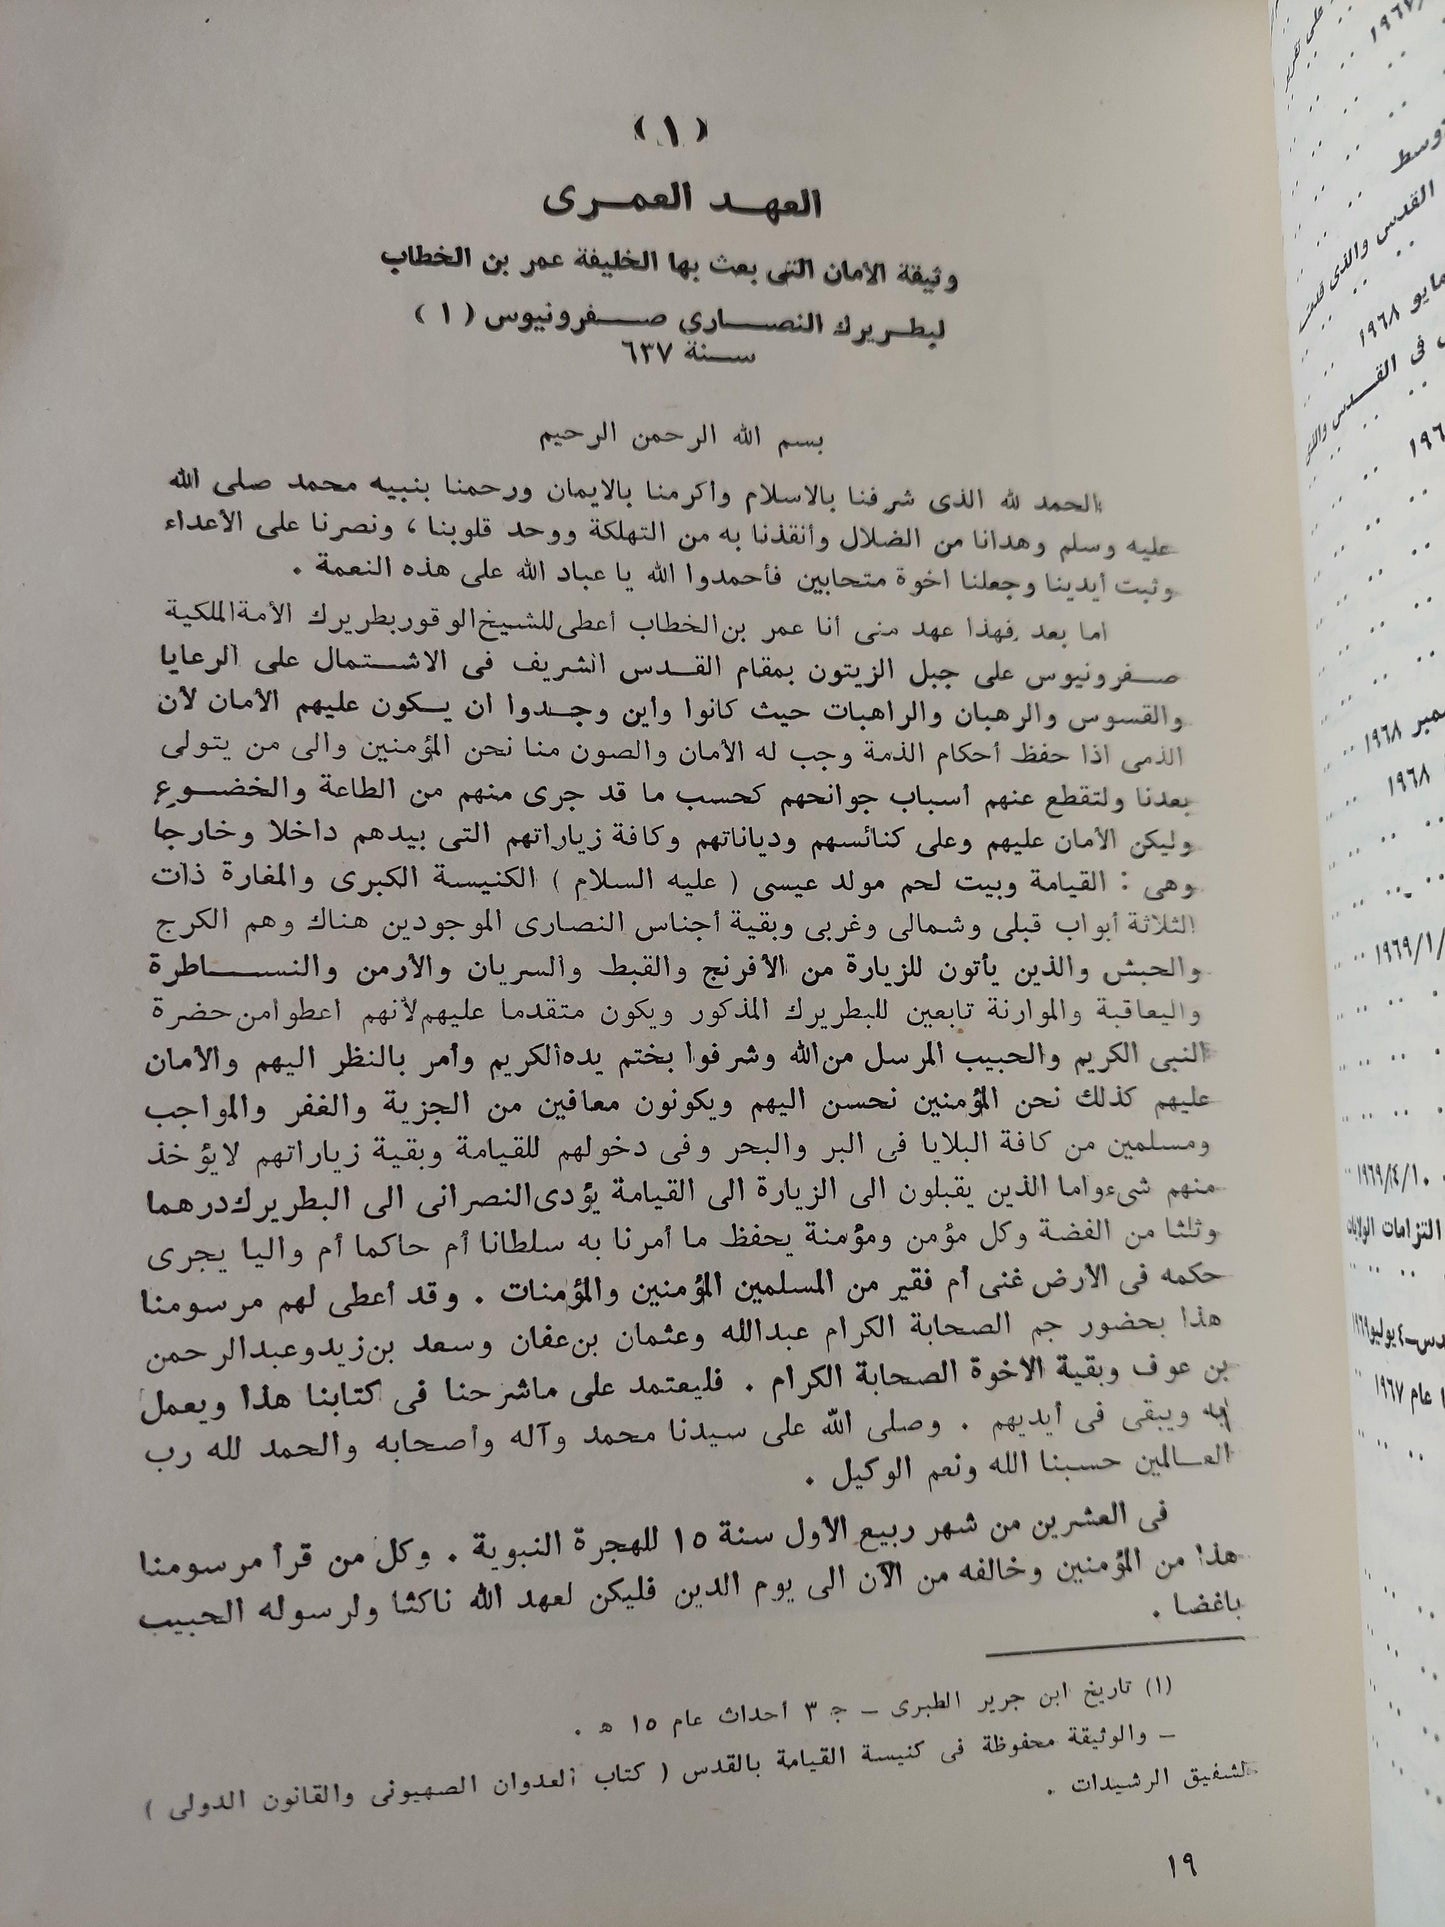 ( ١ )
العهد العمرى
وثيقة الأمان التى بعث بها الخليفة عمر بن الخطاب
لبطريرك النصارى صفرونيوس ( ١ )
سنة ٦٣٧
بسم الله الرحمن الرحيم
الحمد لله الذى شرفنا بالاسلام وأكرمنا بالايمان ورحمنا بنبيه محمد صلى الله
عليه وسلم وهدانا من الضلال وأنقذنا به من التهلكة ووحد قلوبنا ، ونصرنا على الأعداء
وثبت أيدينا وجعلنا اخوة متحابين فأحمدوا الله يا عباد الله على هذه النعمة .
اما بعد فهذا عهد منى أنا عمر بن الخطاب أعطى للشيخ الوقور بطريرك الأمة الملكية
صفرونيوس على جبل الزيتون بمقام القدس الشريف فى الاشتمال على الرعايا
والقسوس والرهبان والراهبات حيث كانوا وأين وجدوا ان يكون عليهم الأمان لأن
الذمى اذا حفظ أحكام الذمة وجب له الأمان والصون منا نحن المؤمنين والى من يتولى
بعدنا ولتقطع عنهم أسباب جوانحهم كحسب ما قد جرى منهم من الطاعة والخضوع
وليكن الأمان عليهم وعلى كنائسهم ودياناتهم وكافة زياراتهم التى بيدهم داخلا وخارجا
وهى : القيامة وبيت لحم مولد عيسى ( عليه السلام ) الكنيسة الكبرى والمغارة ذات
الثلاثة أبواب قبلى وشمالى وغربى وبقية أجناس النصارى الموجودين هناك وهم الكرج
والحبش والذين يأتون للزيارة من الأفرنج والقبط والسريان والأرمن والنساطرة
واليعاقبة والموارنة تابعين للبطريرك المذكور ويكون متقدما عليهم لأنهم اعطوا من حضرة
النبى الكريم والحبيب المرسل من الله وشرفوا بختم يده الكريم وأمر بالنظر اليهم والأمان
عليهم كذلك نحن المؤمنين نحسن اليهم ويكونون معافين من الجزية والغفر والمواجب
ومسلمين من كافة البلايا فى البر والبحر وفى دخولهم للقيامة وبقية زياراتهم لا يؤخذ
منهم شىء واما الذين يقبلون الى الزيارة الى القيامة يؤدى النصرانى الى البطريرك درهما
وثلثا من الفضة وكل مؤمن ومؤمنة يحفظ ما أمرنا به سلطانا أم حاكما أم واليا يجرى
حكمه فى الأرض غنى أم فقير من المسلمين المؤمنين والمؤمنات . وقد أعطى لهم مرسومنا
هذا بحضور جم الصحابة الكرام عبدالله وعثمان بن عفان وسعد بن زيد وعبدالرحمن
بن عوف وبقية الاخوة الصحابة الكرام . فليعتمد على ماشرحنا فى كتابنا هذا ويعمل
به ويبقى فى أيديهم . وصلى الله على سيدنا محمد وآله وأصحابه والحمد لله رب
العالمين حسبنا الله ونعم الوكيل .
فى العشرين من شهر ربيع الأول سنة ١٥ للهجرة النبوية . وكل من قرأ مرسومنا
هذا من المؤمنين وخالفه من الآن الى يوم الدين فليكن لعهد الله ناكثا ولرسوله الحبيب
باغضا .
(١) تاريخ ابن جرير الطبرى — ج ٣ أحداث عام ١٥ هـ .
— والوثيقة محفوظة فى كنيسة القيامة بالقدس ( كتاب العدوان الصهيونى والقانون الدولى )
لشفيق الرشيدات .
١٩
القدس والذى
مايو ١٩٦٨
فى القدس
١٩٦٨
١٩٦٨
١٩٦٩/١/
١٩٦٩/٤/١٠
التزامات الولايات
٤ يوليو ١٩٦٩
عام ١٩٦٧